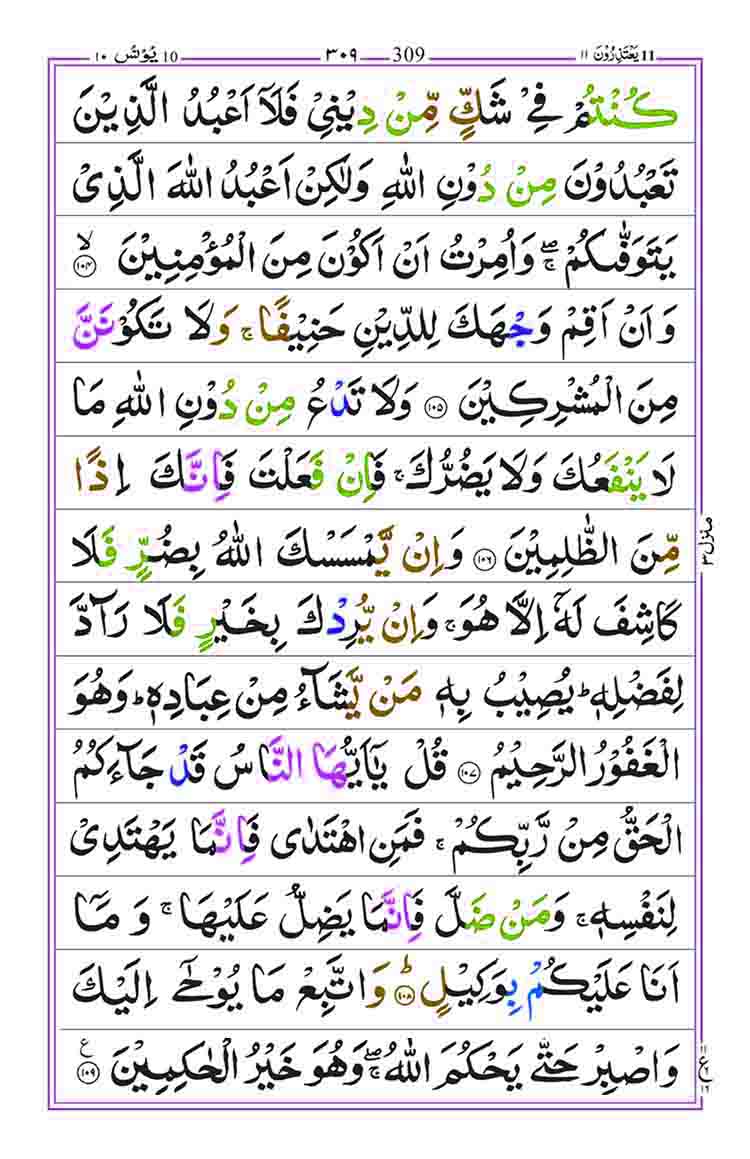 11 يَعْتَذِرُوْنَ ۱۱ 309 ۳۰۹ 10 يُوْنُس ۱۰
كُنْتُمْ فِيْ شَكٍّ مِّنْ دِيْنِيْ فَلَاۤ اَعْبُدُ الَّذِيْنَ
تَعْبُدُوْنَ مِنْ دُوْنِ اللهِ وَلٰكِنْ اَعْبُدُ اللهَ الَّذِيْ
يَتَوَفّٰىكُمْ ۖۚ وَاُمِرْتُ اَنْ اَكُوْنَ مِنَ الْمُؤْمِنِيْنَ ۙ ۱۰۴
وَ اَنْ اَقِمْ وَجْهَكَ لِلدِّيْنِ حَنِيْفًا ۚ وَ لَا تَكُوْنَنَّ
مِنَ الْمُشْرِكِيْنَ ۱۰۵ وَلَا تَدْعُ مِنْ دُوْنِ اللهِ مَا
لَا يَنْفَعُكَ وَلَا يَضُرُّكَ ۚ فَاِنْ فَعَلْتَ فَاِنَّكَ اِذًا
مِّنَ الظّٰلِمِيْنَ ۱۰۶ وَاِنْ يَّمْسَسْكَ اللهُ بِضُرٍّ فَلَا
كَاشِفَ لَهٗۤ اِلَّا هُوَ ۚ وَاِنْ يُّرِدْكَ بِخَيْرٍ فَلَا رَآدَّ
لِفَضْلِهٖ ؕ يُصِيْبُ بِهٖ مَنْ يَّشَآءُ مِنْ عِبَادِهٖ ؕ وَهُوَ
الْغَفُوْرُ الرَّحِيْمُ ۱۰۷ قُلْ يٰۤاَيُّهَا النَّاسُ قَدْ جَآءَكُمُ
الْحَقُّ مِنْ رَّبِّكُمْ ۚ فَمَنِ اهْتَدٰى فَاِنَّمَا يَهْتَدِيْ
لِنَفْسِهٖ ۚ وَمَنْ ضَلَّ فَاِنَّمَا يَضِلُّ عَلَيْهَا ۚ وَ مَاۤ
اَنَا عَلَيْكُمْ بِوَكِيْلٍ ؕ ۱۰۸ وَاتَّبِعْ مَا يُوْحٰۤى اِلَيْكَ
وَاصْبِرْ حَتّٰى يَحْكُمَ اللهُ ۖۚ وَهُوَ خَيْرُ الْحٰكِمِيْنَ ۱۰۹ ع
منزل ۳
۱۱ ع ۶ ۱۶